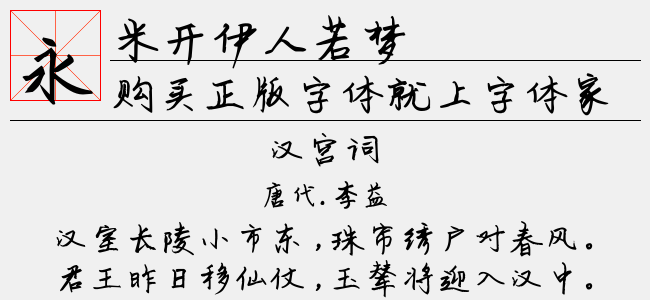 永
米开伊人若梦
购买正版字体就上字体家
汉宫词
唐代.李益
汉室长陵小市东,珠帘绣户对春风。
君王昨日移仙仗,玉辇将迎入汉中。